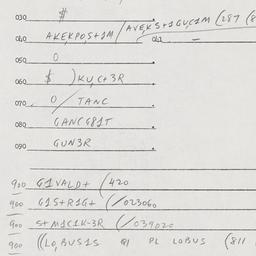 030 #
040 AKEKPOS+1M/AVEKS+1GUC1M (287 (8
050 0
060 $ )KUC+3R
070 0/TANC
080 GANCG81T
090 GUN3R
920 G1VALD+ (420
900 G1S+R1G+ (/023060
900 S+M1C1K-3R (/039020
900 ((LO,BUS1S GI PL LOBUS (811